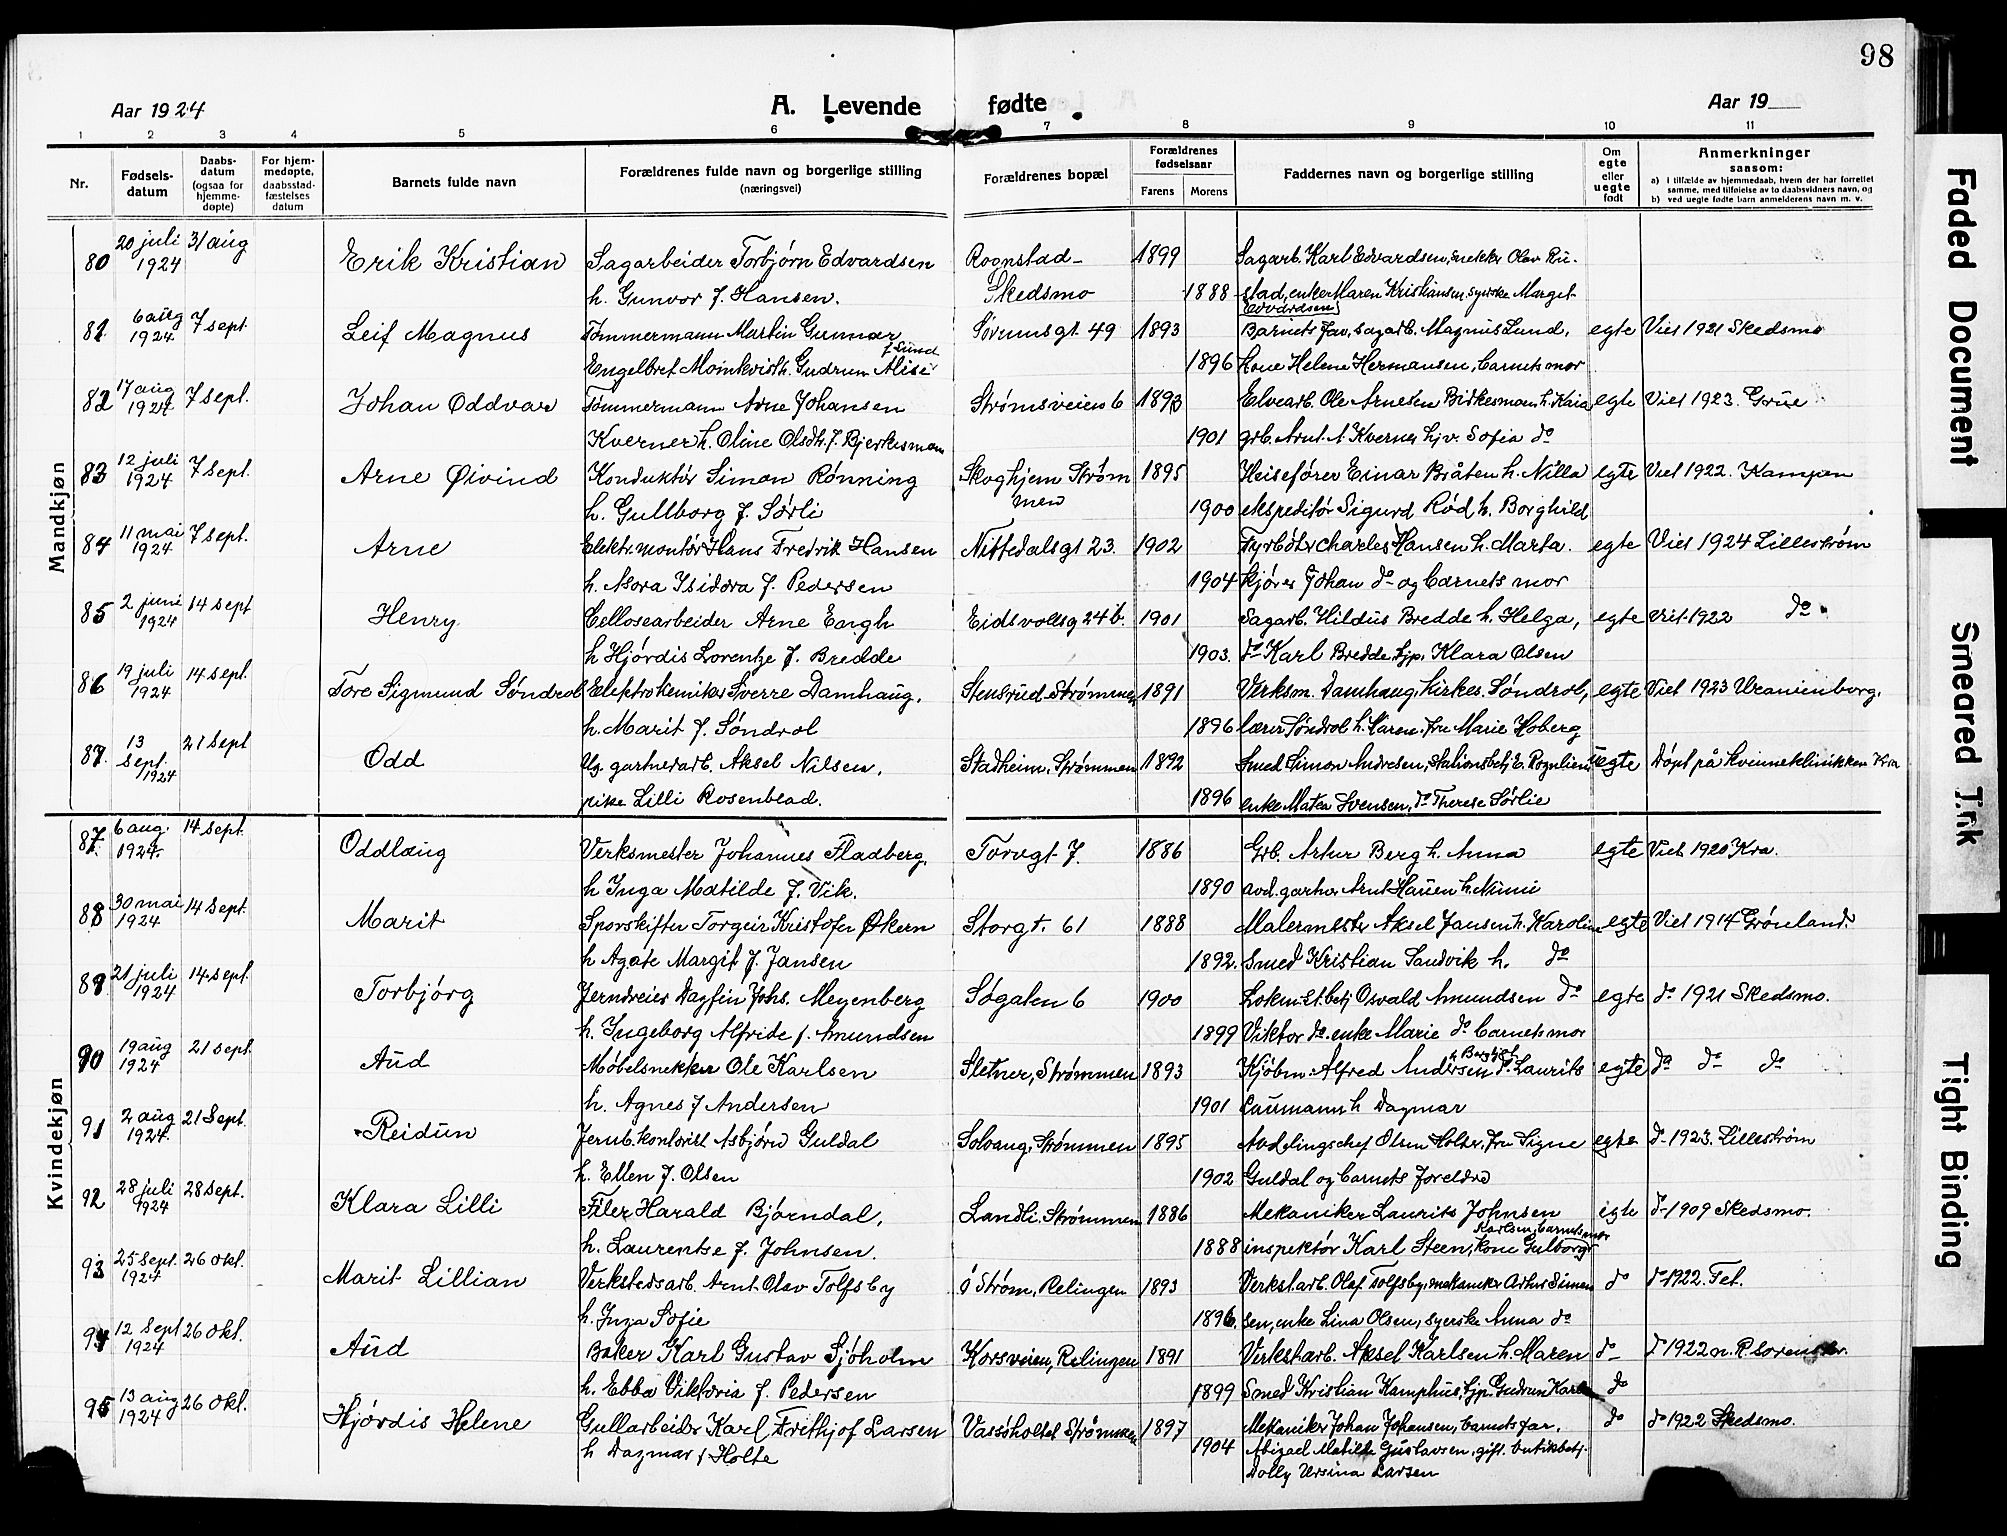 98
Aar 1924
A. Levende fødte
Aar 19
1 2 3 4 5 6 7 8 9 10 11
Nr.
Fødsels-datum
Daabs-datum (ogsaa for hjemme-døpte)
For hjem-medøpte, daabsstad-fæstelses datum
Barnets fulde navn
Forældrenes fulde navn og borgerlige stilling (næringsvei)
Forældrenes bopæl
Forældrenes fødselsaar
Farens Morens
Faddernes navn og borgerlige stilling
Om egte eller uegte født
Anmerkninger saasom:
a) i tilfælde av hjemmedaab, hvem der har forrettet samme, med tilføielse av to daabsvidners navn, og
b) ved uegte fødte barn anmelderens navn m. v.
Mandkjøn
80 20 juli 1924 31 aug Erik Kristian Sagarbeider Torbjørn Edvardsen Rognstad- 1899 Sagarb. Karl Edvardsen, snekker Olav Ru-
h. Gunvor f. Hansen. Skedsmo 1888 stad, enke Maren Kristiansen, syerske Margit Edvardsen
81 6 aug 1924 7 sept. Leif Magnus Tømmermann Martin Gunnar Sørumsgt 49 1893 Barnets far, sagarb. Magnus Lund, egte Viet 1921 Skedsmo
Engelbret Momkvist h. Gudrun Alise f. Lund 1896 kone Helene Hermansen, barnets mor
82 17 aug 1924 7 sept. Johan Oddvar Tømmermann Arne Johansen Strømsveien 6 1893 Elvearb. Ole Arnesen Birkesmann h. Kaia egte Viet 1923. Grue
Kverner h. Oline Olsdtr. f. Bjerkesmon 1901 grb. Arnt A Kverner hjv. Sofia do
83 12 juli 1924 7 sept. Arne Øivind Konduktør Simon Rønning Skoghjem Strømmen 1895 Heisefører Einar Bråten h. Nilla egte Viet 1922. Kampen
h. Gullborg f. Sørli 1900 ekspeditør Sigurd Rød h. Borghild
84 11 mai 1924 7 sept. Arne Elektr.montør Hans Fredrik Hansen Nittedalsgt 23. 1902 Fyrbøter Charles Hansen h. Marta. egte Viet 1924 Lillestrøm
h. Asora Isidora f. Pedersen 1904 kjører Johan do og barnets mor
85 2 juni 1924 14 sept Henry Cellosearbeider Arne Engh Eidsvollsg 24 b. 1901 Sagarb. Hildus Bredde h. Helga, egte Viet 1922 do
h Hjørdis Lorentze f. Bredde 1903. do Karl Bredde, hjp. Klara Olsen
86 19 juli 1924 14 sept. Tore Sigmund Søndrol Elektrokemiker Sverre Damhaug. Stensrud Strømmen 1891 Verksm. Damhaug, kirkes. Søndrol, egte Viet 1923 Uranienborg.
h. Marit f. Søndrol 1896 lærer Søndrol h. Karen. Fru Marie Hoberg
87. 13 sept. 1924 21 sept Odd Ug. gartnerarb. Aksel Nilsen. Stadheim, Strømmen 1892 Smed Simon Andresen, stationsbetj E. Rognlien, uegte Døpt på Kvinneklinikken Kra
pike Lilli Rosenblad. 1896 enke Matea Svensen, do Therese Sørlie
Kvindekjøn
87. 6 aug. 1924. 14 sept. Oddlaug Verksmester Johannes Fladberg. Torvgt 7. 1886 Grb. Artur Berg h. Anna egte Viet 1920 Kra.
h Inga Matilde f. Vik. 1890 avd.gartner Arnt Hauen h. Mimmi
88 30 mai 1924 14 sept. Marit Sporskifter Torgeir Kristofer Økern Storgt. 61 1888 Malermester Aksel Jansen h. Karoline egte Viet 1914 Grønland.
h Agate Margit f. Jansen 1892. Smed Kristian Sandvik h. do
89 21 juli 1924 14 sept. Torbjørg Jerndreier Dagfin Johs. Meyenberg Søgaten 6 1900 Lokm.st.betj Osvald Amundsen do egte do 1921 Skedsmo.
h. Ingeborg Alfride f. Amundsen 1899 Viktor do. enke Marie do barnets mor
90 19 aug 1924 21 sept. Aud Møbelsnekker Ole Karlsen Sletner, Strømmen 1893 Kjøbm. Alfred Andersen h Bergliot do Laurits egte do do do
h. Agnes f Andersen 1901 Laumann h Dagmar
91 2 aug 1924. 21 sept. Reidun Jernb.kontorist Asbjørn Guldal Solvang, Strømmen 1895 Avdelingschef Olsen Holter, fru Signe egte do 1923. Lillestrøm
h. Ellen f. Olsen 1902 Guldal og barnets foreldre
92 28 juli 1924 28 sept. Klara Lilli Filer Harald Bjørndal. Landli, Strømmen 1886 Mekaniker Laurits Johnsen egte do 1909 Skedsmo.
h. Laurentse f. Johnsen. 1888 inspektør Karl Steen, kone Gulborg Karlsen, barnets mor
93 25 sept. 1924 26 okt. Marit Lillian Verkstedsarb. Arnt Olav Tolfsby ø Strøm, Relingen 1893 Verkst.arb. Olaf Tolfsby, mekaniker Artur Simen do do 1922. Fet.
h. Inga Sofie 1896. sen, enke Lina Olsen, syerske Anna do
94 12 sept 1924 26 okt. Aud Baker Karl Gustav Sjøholm Korsveien, Relingen 1891 Verkst.arb. Aksel Karlsen h. Maren do do 1922
h. Ebba Viktoria f. Pedersen 1899 Smed Kristian Kamphus, hjp. Gudrun Karlsen do
95 13 aug 1924 26 okt. Hjørdis Helene Gullarbeider Karl Frithjof Larsen Vassholtet Strømmen 1897 Mekaniker Johan Johansen, barnets far. do do 1922 Skedsmo.
h Dagmar f Holte 1904 Abigael Matilde Gustavsen, gift. butikkbetj. Dolly Ursina Larsen
Faded Document
Smeared Ink
Tight Binding